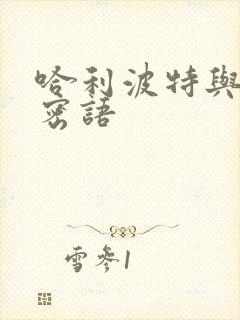 哈利波特與
密語
雪參1